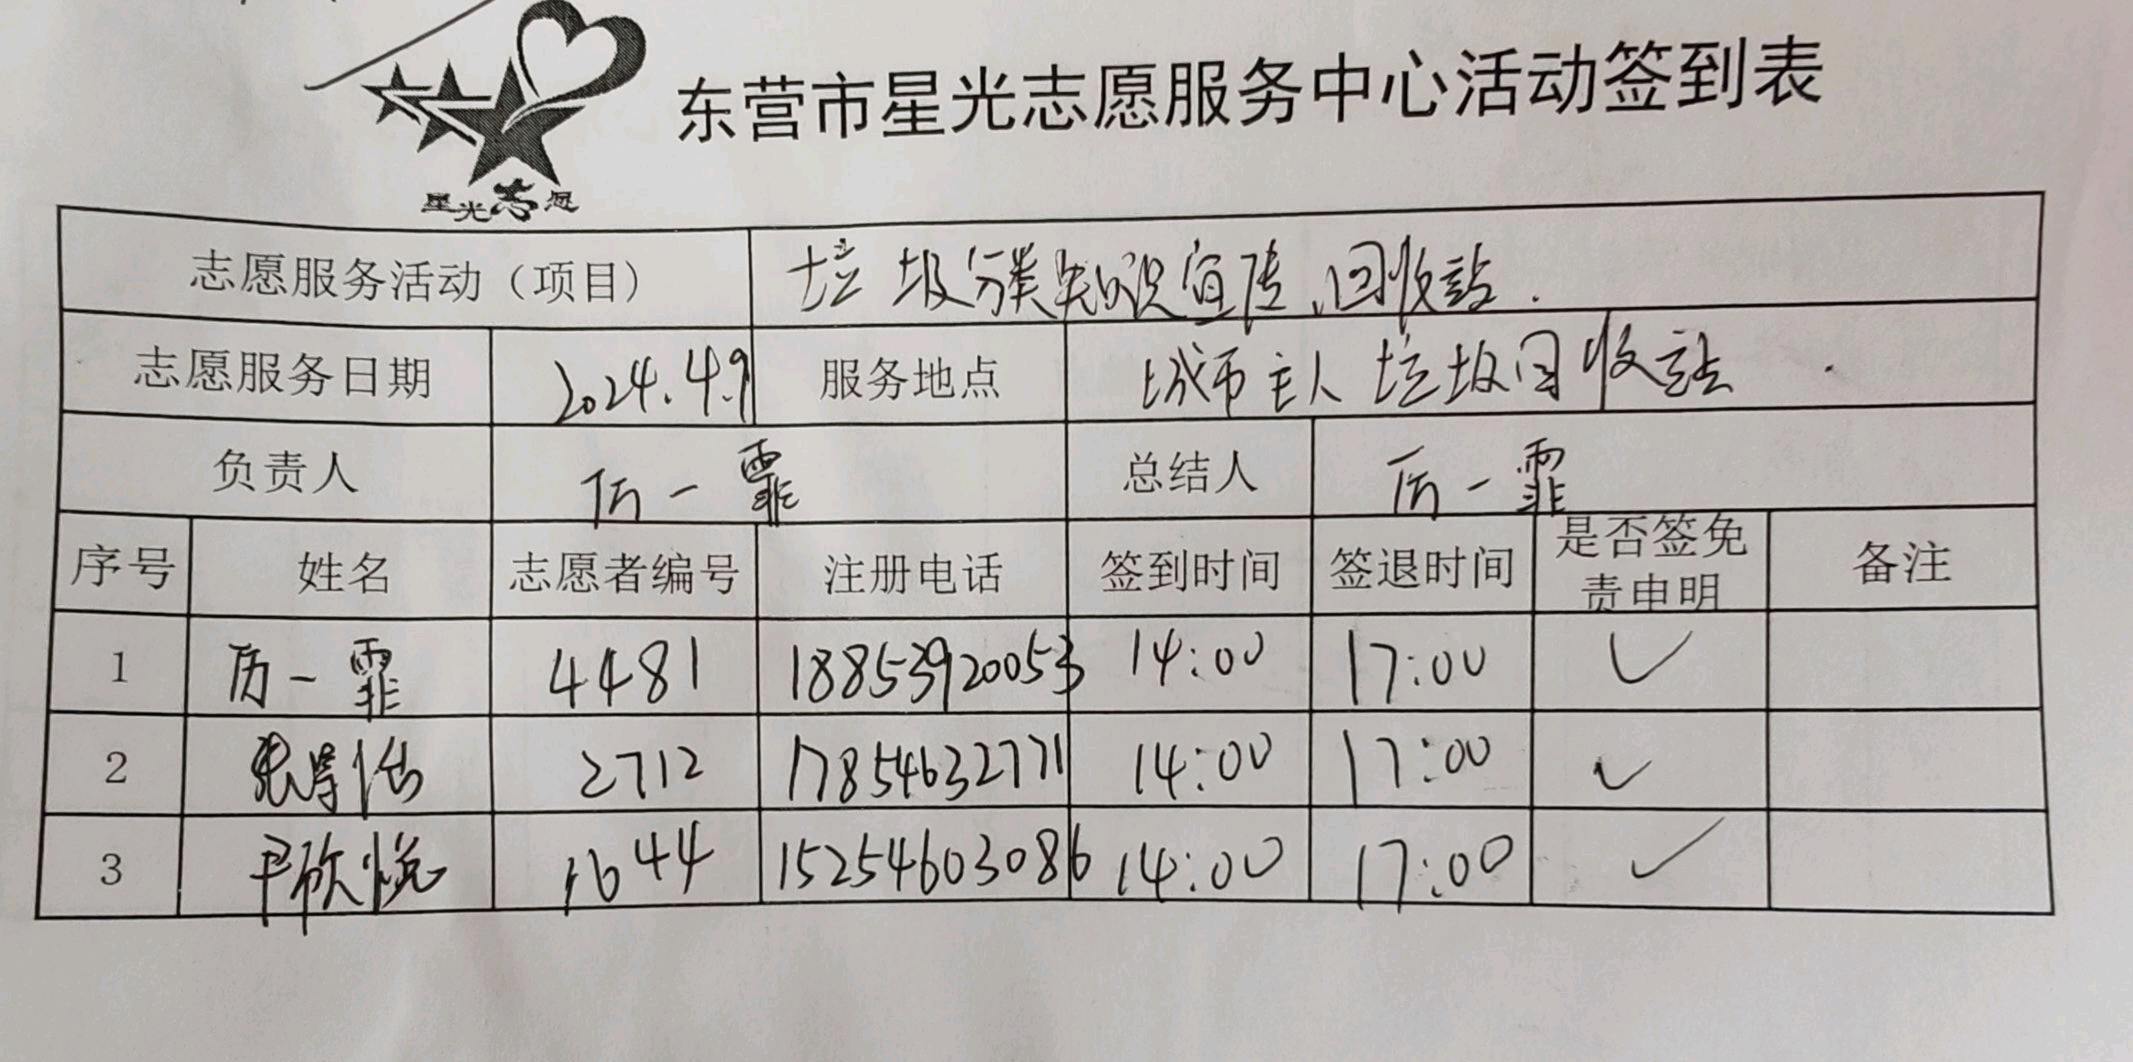 东营市星光志愿服务中心活动签到表
星光志愿
志愿服务活动（项目） 垃圾分类知识宣传、回收站.
志愿服务日期 2024.4.9 服务地点 城市主人垃圾回收站.
负责人 历一霏 总结人 历一霏
序号 姓名 志愿者编号 注册电话 签到时间 签退时间 是否签免责申明 备注
1 历一霏 4481 18853920053 14:00 17:00 ✓
2 2712 17854632771 14:00 17:00 ✓
3 尹欣悦 1644 15254603086 14:00 17:00 ✓